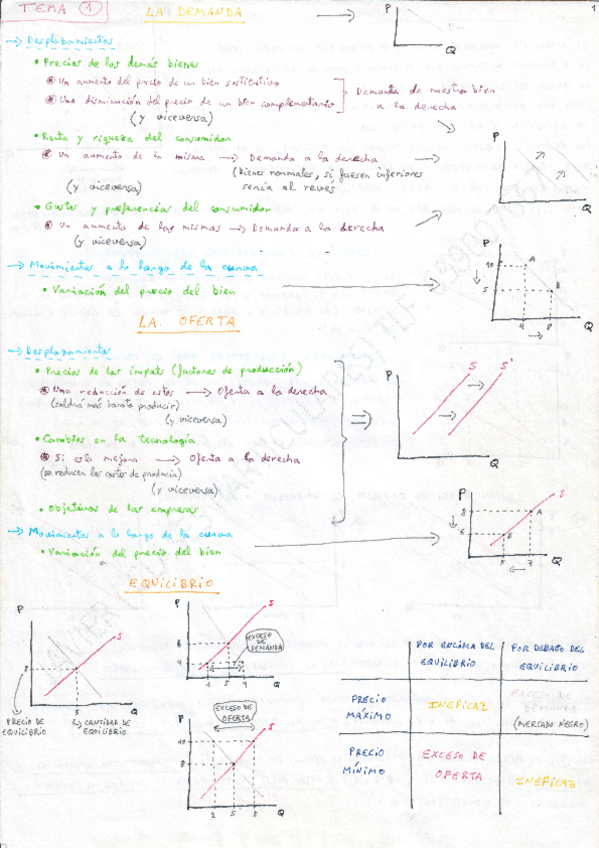 TEMA 1
LA DEMANDA
1
→ Desplazamientos
• Precios de los demás bienes
Un aumento del precio de un bien sustitutivo
Una disminución del precio de un bien complementario
(y viceversa)
Demanda de nuestro bien
a la derecha
• Renta y riqueza del consumidor
Un aumento de la misma → Demanda a la derecha
(bienes normales, si fuesen inferiores
sería al revés
(y viceversa)
• Gustos y preferencias del consumidor
Un aumento de las mismas → Demanda a la derecha
(y viceversa)
→ Movimientos a lo largo de la curva
• Variación del precio del bien
P
Q
P
Q
P
10
5
A
B
4
8
Q
LA OFERTA
→ Desplazamientos
• Precios de los inputs (factores de producción)
Una reducción de estos → Oferta a la derecha
(saldrá más barato producir)
(y viceversa)
• Cambios en la tecnología
Si esta mejora → Oferta a la derecha
(se reducen los costes de producir)
(y viceversa)
• Objetivos de las empresas
→ Movimientos a lo largo de la curva
• Variación del precio del bien
P
S
S'
Q
P
8
6
S
A
B
5
7
Q
EQUILIBRIO
P
S
8
5
Q
PRECIO DE
EQUILIBRIO
CANTIDAD DE
EQUILIBRIO
P
S
EXCESO DE
DEMANDA
Q
P
EXCESO DE
OFERTA
S
10
8
2
5
8
Q
POR ENCIMA DEL
EQUILIBRIO
POR DEBAJO DEL
EQUILIBRIO
PRECIO
MÁXIMO
INEFICAZ
EXCESO DE
DEMANDA
(MERCADO NEGRO)
PRECIO
MÍNIMO
EXCESO DE
OFERTA
INEFICAZ